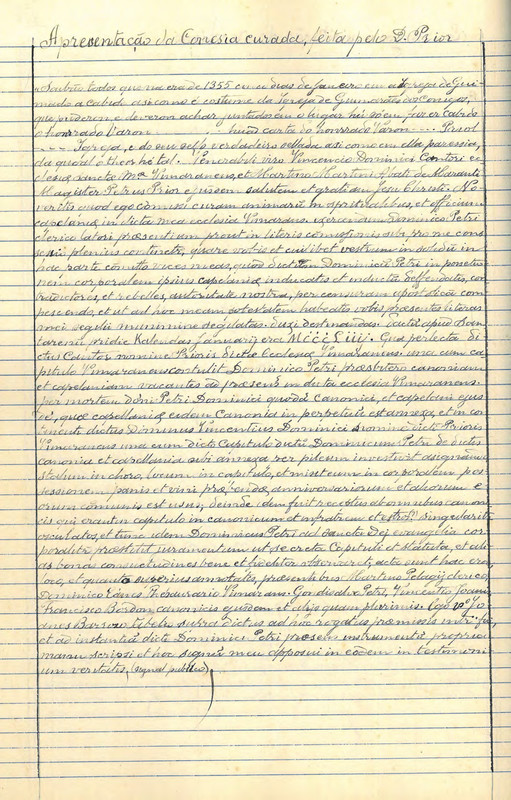 Apresentação da Conesia curada, feita pelo D. Prior
Saubão todos que na era de 1355 cinco dias de Janeiro em a Igreja de Gui-
marães a Cabido asi como é costume da Igreja de Guimarães os Conigos,
que poderem e deverom achar, juntados em o lugar hu soem fazer cabido
o honrado Varon hua carta do honrrado Varon Priol
Igreja, e do seu sello verdadeiro sellada asi como em ella parescia,
da qual o theor he tal. Venerabili viro Vincencio Dominici Cantori ec
clesiæ sanctæ Mæ Vimaranens, et Martino Martini Abati de
Magister Petrus Prior ejusdem salutem et gratiam Jesu Christi. No-
veritis quod ego comisi curam animarum in spiritualibus, et officium
capelaniæ in dicta mea ecclesia Vimarans, exercendum Dominico Petri
clerico latori præsentium prout in literis comisoriis sub pro me cons
plenius continetr, quare vobis et cuilibet vestrum in solidum in
hac parte comitto vices meas, quod dictum Dominicum Petri in posesio
nem corporalem ipsius capelaniæ inducatis et inductum deffendatis, con
tradictores, et rebelles, autoritate nostra, per censuram apostolicã com
pescendo, et ut ad hoc meam potestatem habeatis vobis præsentes literas
mei sigilli munimine sigilatas duxi destinandas. Datũ apud San-
tarenũ pridie Kalendas Januarii era MCCCLiii. Qua perlecta di
ctus Cantor nomine Prioris dictæ Ecclesiæ Vimaranensi una cum ca
pitulo Vimaranens contulit Dominico Petri præsbitero canoniam
et capelaniam vacantes ad præsens in dicta ecclesia Vimaranens.
per mortem dõni Petri Dominici quondã Canonici, et capelani ejus
dẽ, quæ capellania eidem Canonia in perpetuũ est annexa, et in con
tinenti dictus Dominus Vincentius Dominici nomine dicti Prioris
Vimaranens una cum dicto Capitulo dictũ Dominicum Petri de dictis
canonia et capellania sibi annexa per pileum investivit asignãns
stallum in choro, locum in capitulo, et misit eum in corporalem pos
sessionem panis et vini præbendæ, anniversariorum et aliorum
orum comunis est usus, deinde idem fuit receptus ab omnibus canoni
cis qui erant in capitulo in canonicum et infratrem et singulariter
osculatus, et tunc idem Dominicus Petri ad sancta Dei evangelia cor
poraliter præstitit juramentum ut secreta Capituli et statuta, et ali
as bonas consuetudines bene et fideliter observaret, acta sunt hæc era
loco, et quando superius annotatis, præsentibus Martino Pelagii clerico,
Dominico Eanes Thesaurario Vimarans. Gondisalvo Petri, Vincentio Joanis
Francisco Bordon, canonicis quidem et aliis quam plurimis. Ego Jo
anes Barroso tabelio supra dictus ad hoc rogatus præmissis interfui,
et ad instantiã dicti Dominici Petri præsens instrumentũ propria
manu scripsi et hoc signũ meũ apposui in eodem in testimoni
um veritatis, (signal publico)